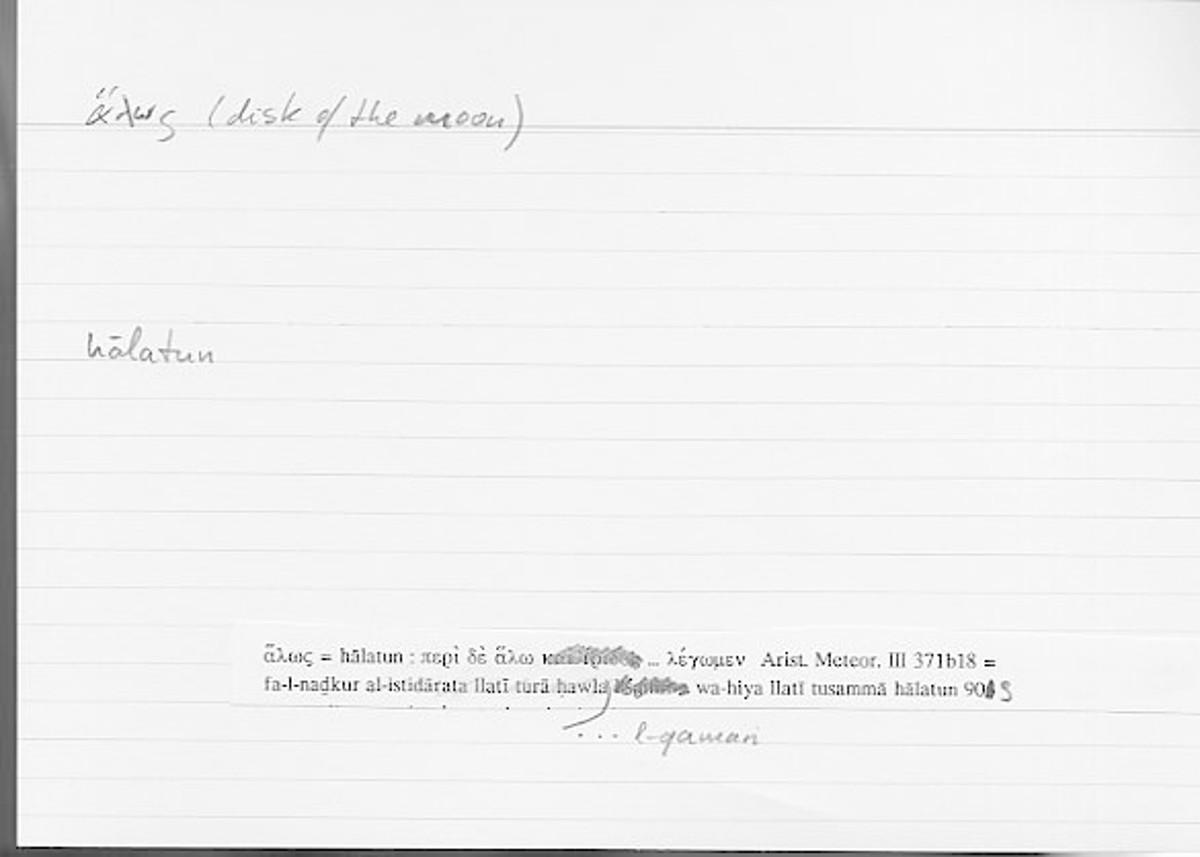 ἅλως (disk of the moon)
hālatun
ἅλως = hālatun : περὶ δὲ ἅλω ... λέγωμεν Arist. Meteor. III 371b18 =
fa-l-naḏkur al-istidārata llatī turā ḥawla wa-hiya llatī tusammā hālatun 90
... l-qamari